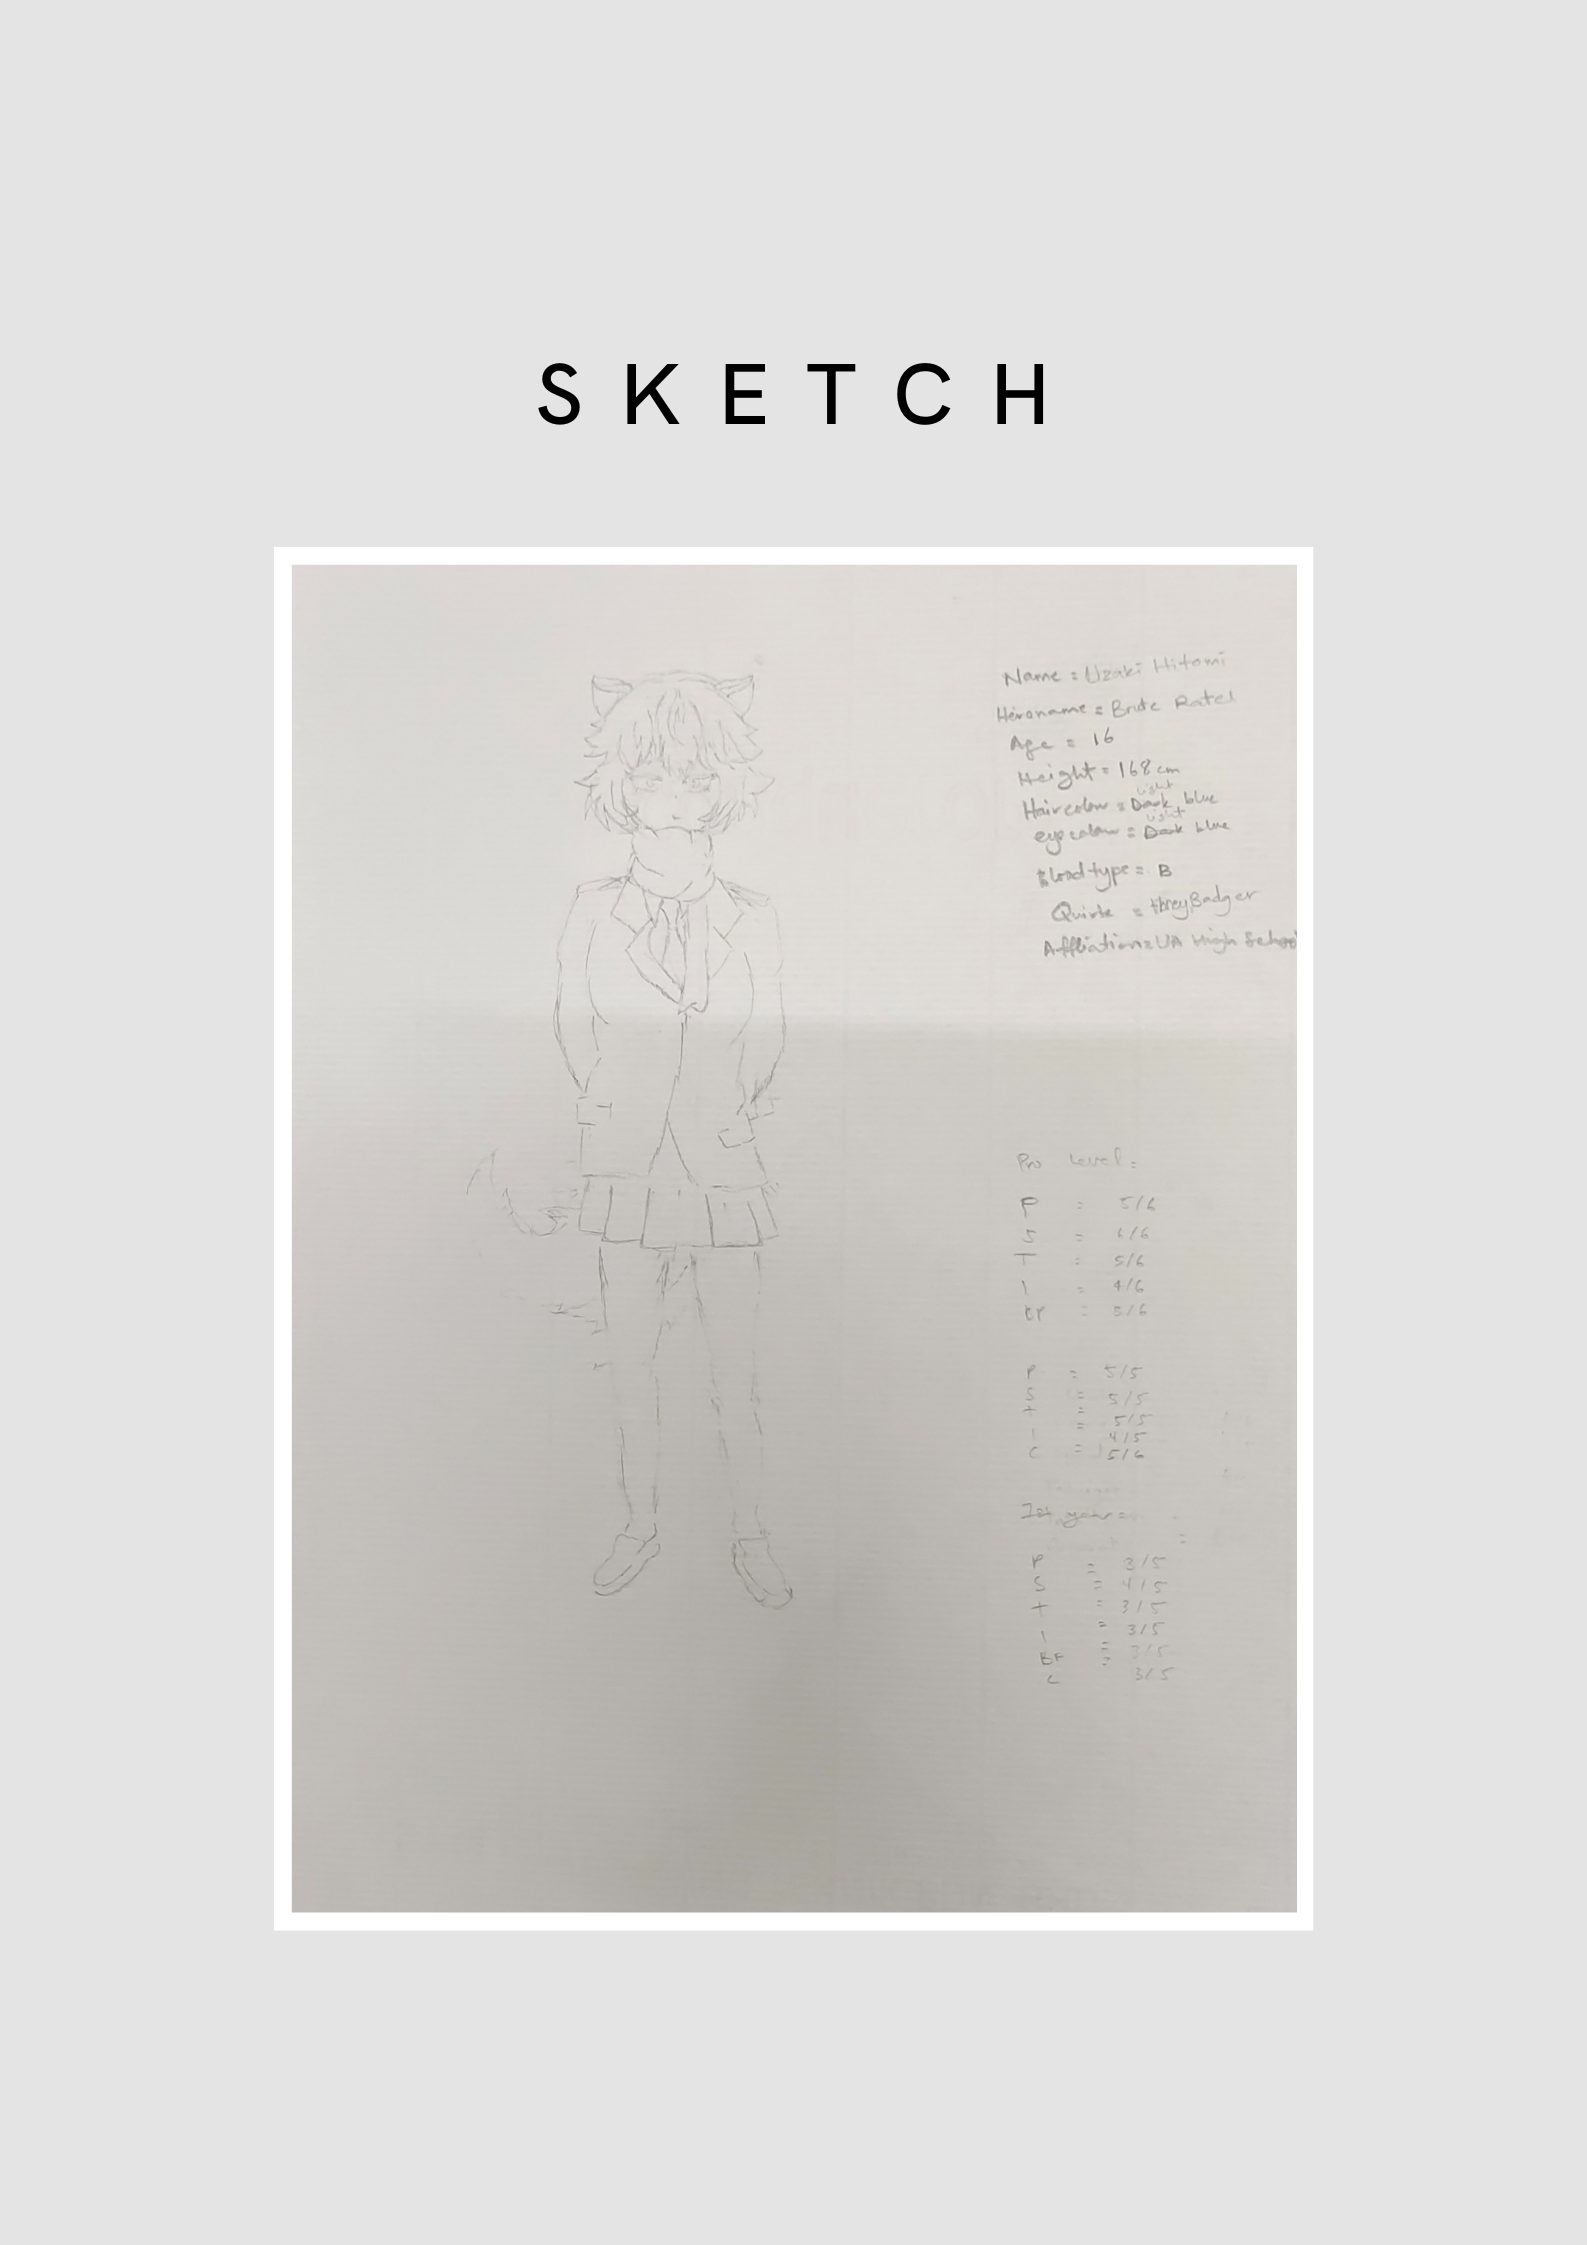 SKETCH
Name = Uzaki Hitomi
Heroname = Brute Ratel
Age = 16
Height = 168 cm
light
Haircolour = Dark blue
light
eye colour = Dark blue
Bloodtype = B
Quirk = HoneyBadger
Affliation = UA High School
Pro Level =
P = 5/6
S = 6/6
T = 5/6
I = 4/6
BP = 5/6
P = 5/5
S = 5/5
T = 5/5
I = 4/5
C = 5/6
1st year =
P = 3/5
S = 4/5
T = 3/5
I = 3/5
C 3/5